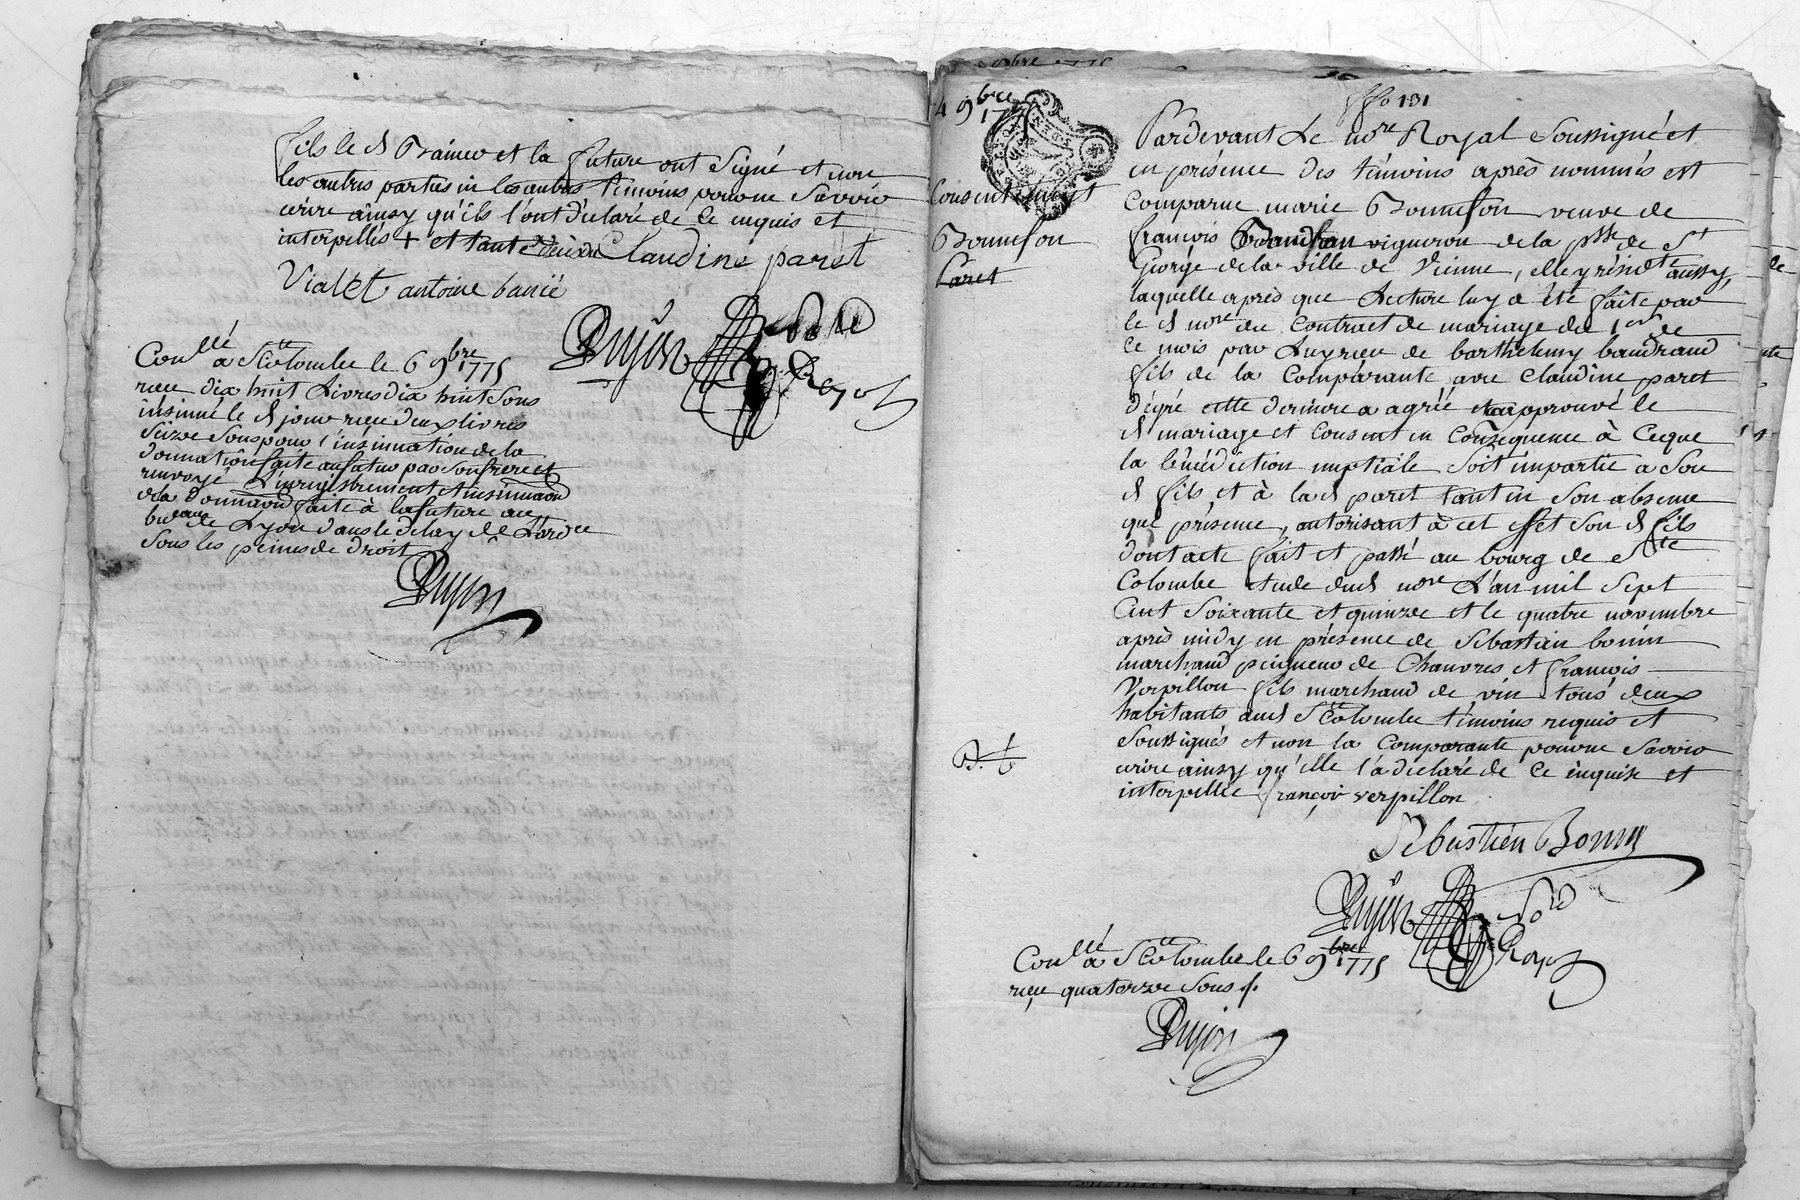 fils le d Trainer et la future ont signé et non
les autres parties ni les autres témoins pour ne savoir
ecrire ainsy qu'ils l'ont déclaré de ce enquis et
interpellés + et tante Claudine paret
Vialet antoine
Dujon No.re Royal
Con.llé à S.te Colombe le 6 9bre 1775
reçu dix huit Livres dix huit sous
insinué le d jour reçu deux livres
seize sous pour l'insinuation de la
donnation faite au futur par son frere et
renvoyé l'enregistrement et insinuaon
de la donnaon faite à la future au
bureau de Lyon dans le delay de L'ord.ce
sous les peines de droit
Dujon
4 9bre 1775
Consentement
Bonnefon
Paret
ffo 131
Pardevant Le no.re Royal Soussigné et
en présence des témoins après nommés est
comparue marie Bonnefon veuve de
françois Baudran vigneron de la p.sse de S.t
George de la ville de Vienne, elle y résid.te aussy,
laquelle après que Lecture luy a été faite par
le d no.re du Contract de mariage du 1er de
ce mois par Luy reçu de barthelemy baudrand
fils de la Comparante avec Claudine paret
de gré cette derniere a agréé et approuvé le
d mariage et consent en conséquence à ce que
la bénédiction nuptiale soit impartie a son
d fils et à la d paret tant en son absence
que présence, autorisant à cet effet son d fils
dont acte fait et passé au bourg de S.te
Colombe etude dud no.re L'an mil sept
cent soixante et quinze et le quatre novembre
après midy en présence de Sebastien bonin
marchand peigneur de Chanvres et françois
Verpillon fils marchand de vin tous deux
habitants aud S.te Colombe témoins requis et
soussignés et non la Comparante pour ne savoir
ecrire ainsy qu'elle l'a déclaré de ce enquise et
interpellée françois verpillon
Sebastien Bonin
Dujon No.re Royal
Con.llé à S.te Colombe le 6 9bre 1775
reçu quatorze sous
Dujon